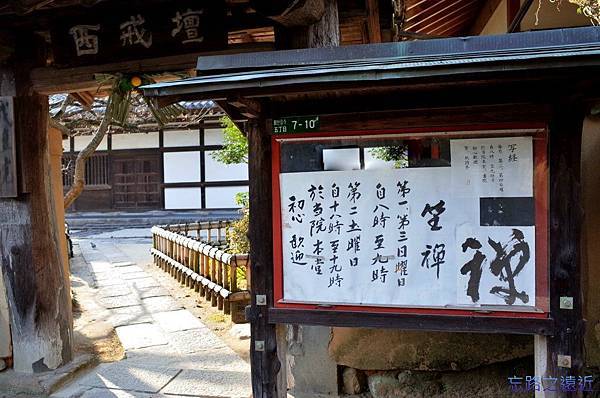 西戒壇
五丁目
7-10
坐禅
第一第三日曜日
自八時至九時
第二土曜日
自十八時至十九時
於当院本堂
初心歓迎
禅
写経
忘路之遠近